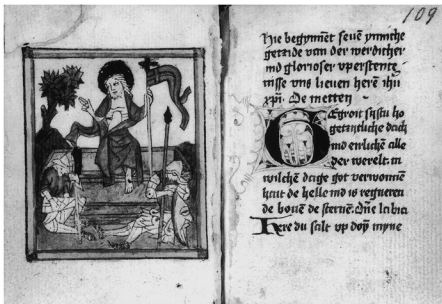 109
Hie begynnēt sevē ynniche
getzide van der werdicher
vnd glorioser vperstente
nisse vns lieuen herē ihū
xpi. De metten
Gegroit sijstu ho
getzitliche dach
vnd erwliche alle
der werelt. in
wilchē dage got verwonnē
haut de helle vnd is regneren
de bouē de sternē. Dñe labia
Here du salt vp doyn myne